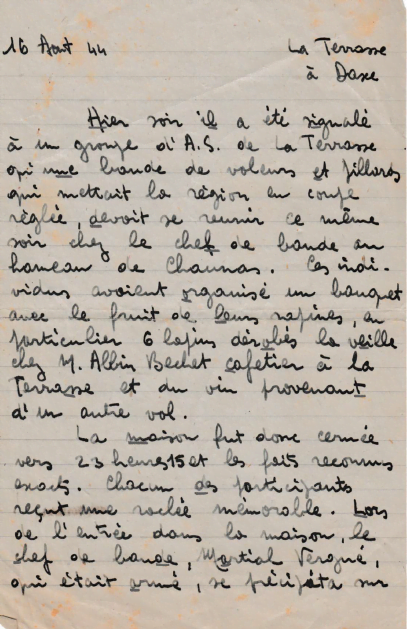 16 Aout 44
La Terrasse
à Daxe
Hier soir il a été signalé
à un groupe d'A.S. de La Terrasse
qu'une bande de voleurs et pillards
qui mettait la région en coupe
réglée, devait se reunir ce même
soir chez le chef de bande au
hameau de Chaunas. Ces indi-
vidus avaient organisé un banquet
avec le fruit de leurs rapines, en
particulier 6 lapins dérobés la veille
chez M. Albin Bechet cafetier à la
Terrasse et du vin provenant
d'un autre vol.
La maison fut donc cernée
vers 23 heures 15 et les faits reconnus
exacts. Chacun des participants
reçut une raclée mémorable. Lors
de l'entrée dans la maison, le
chef de bande, Martial Vergné,
qui était armé, se précipita sur